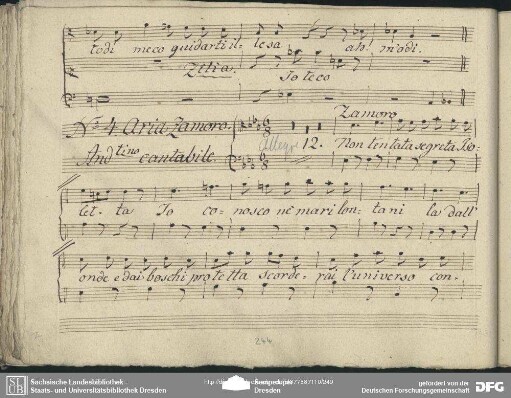 todi meco guidarti il- lesa ah! m'odi.
Zilia.
Io teco
Zamoro
No. 4. Aria Zamoro.
Allegro 12. Non tentata segreta Iso-
Andtino cantabile.
let- ta Io co- nosco ne mari lon- tani la dall'
onde e dai boschi protetta scorde- rai l'universo con-
244
SLUB
Sächsische Landesbibliothek
Staats- und Universitätsbibliothek Dresden
Dresden
gefördert von der
Deutschen Forschungsgemeinschaft
DFG